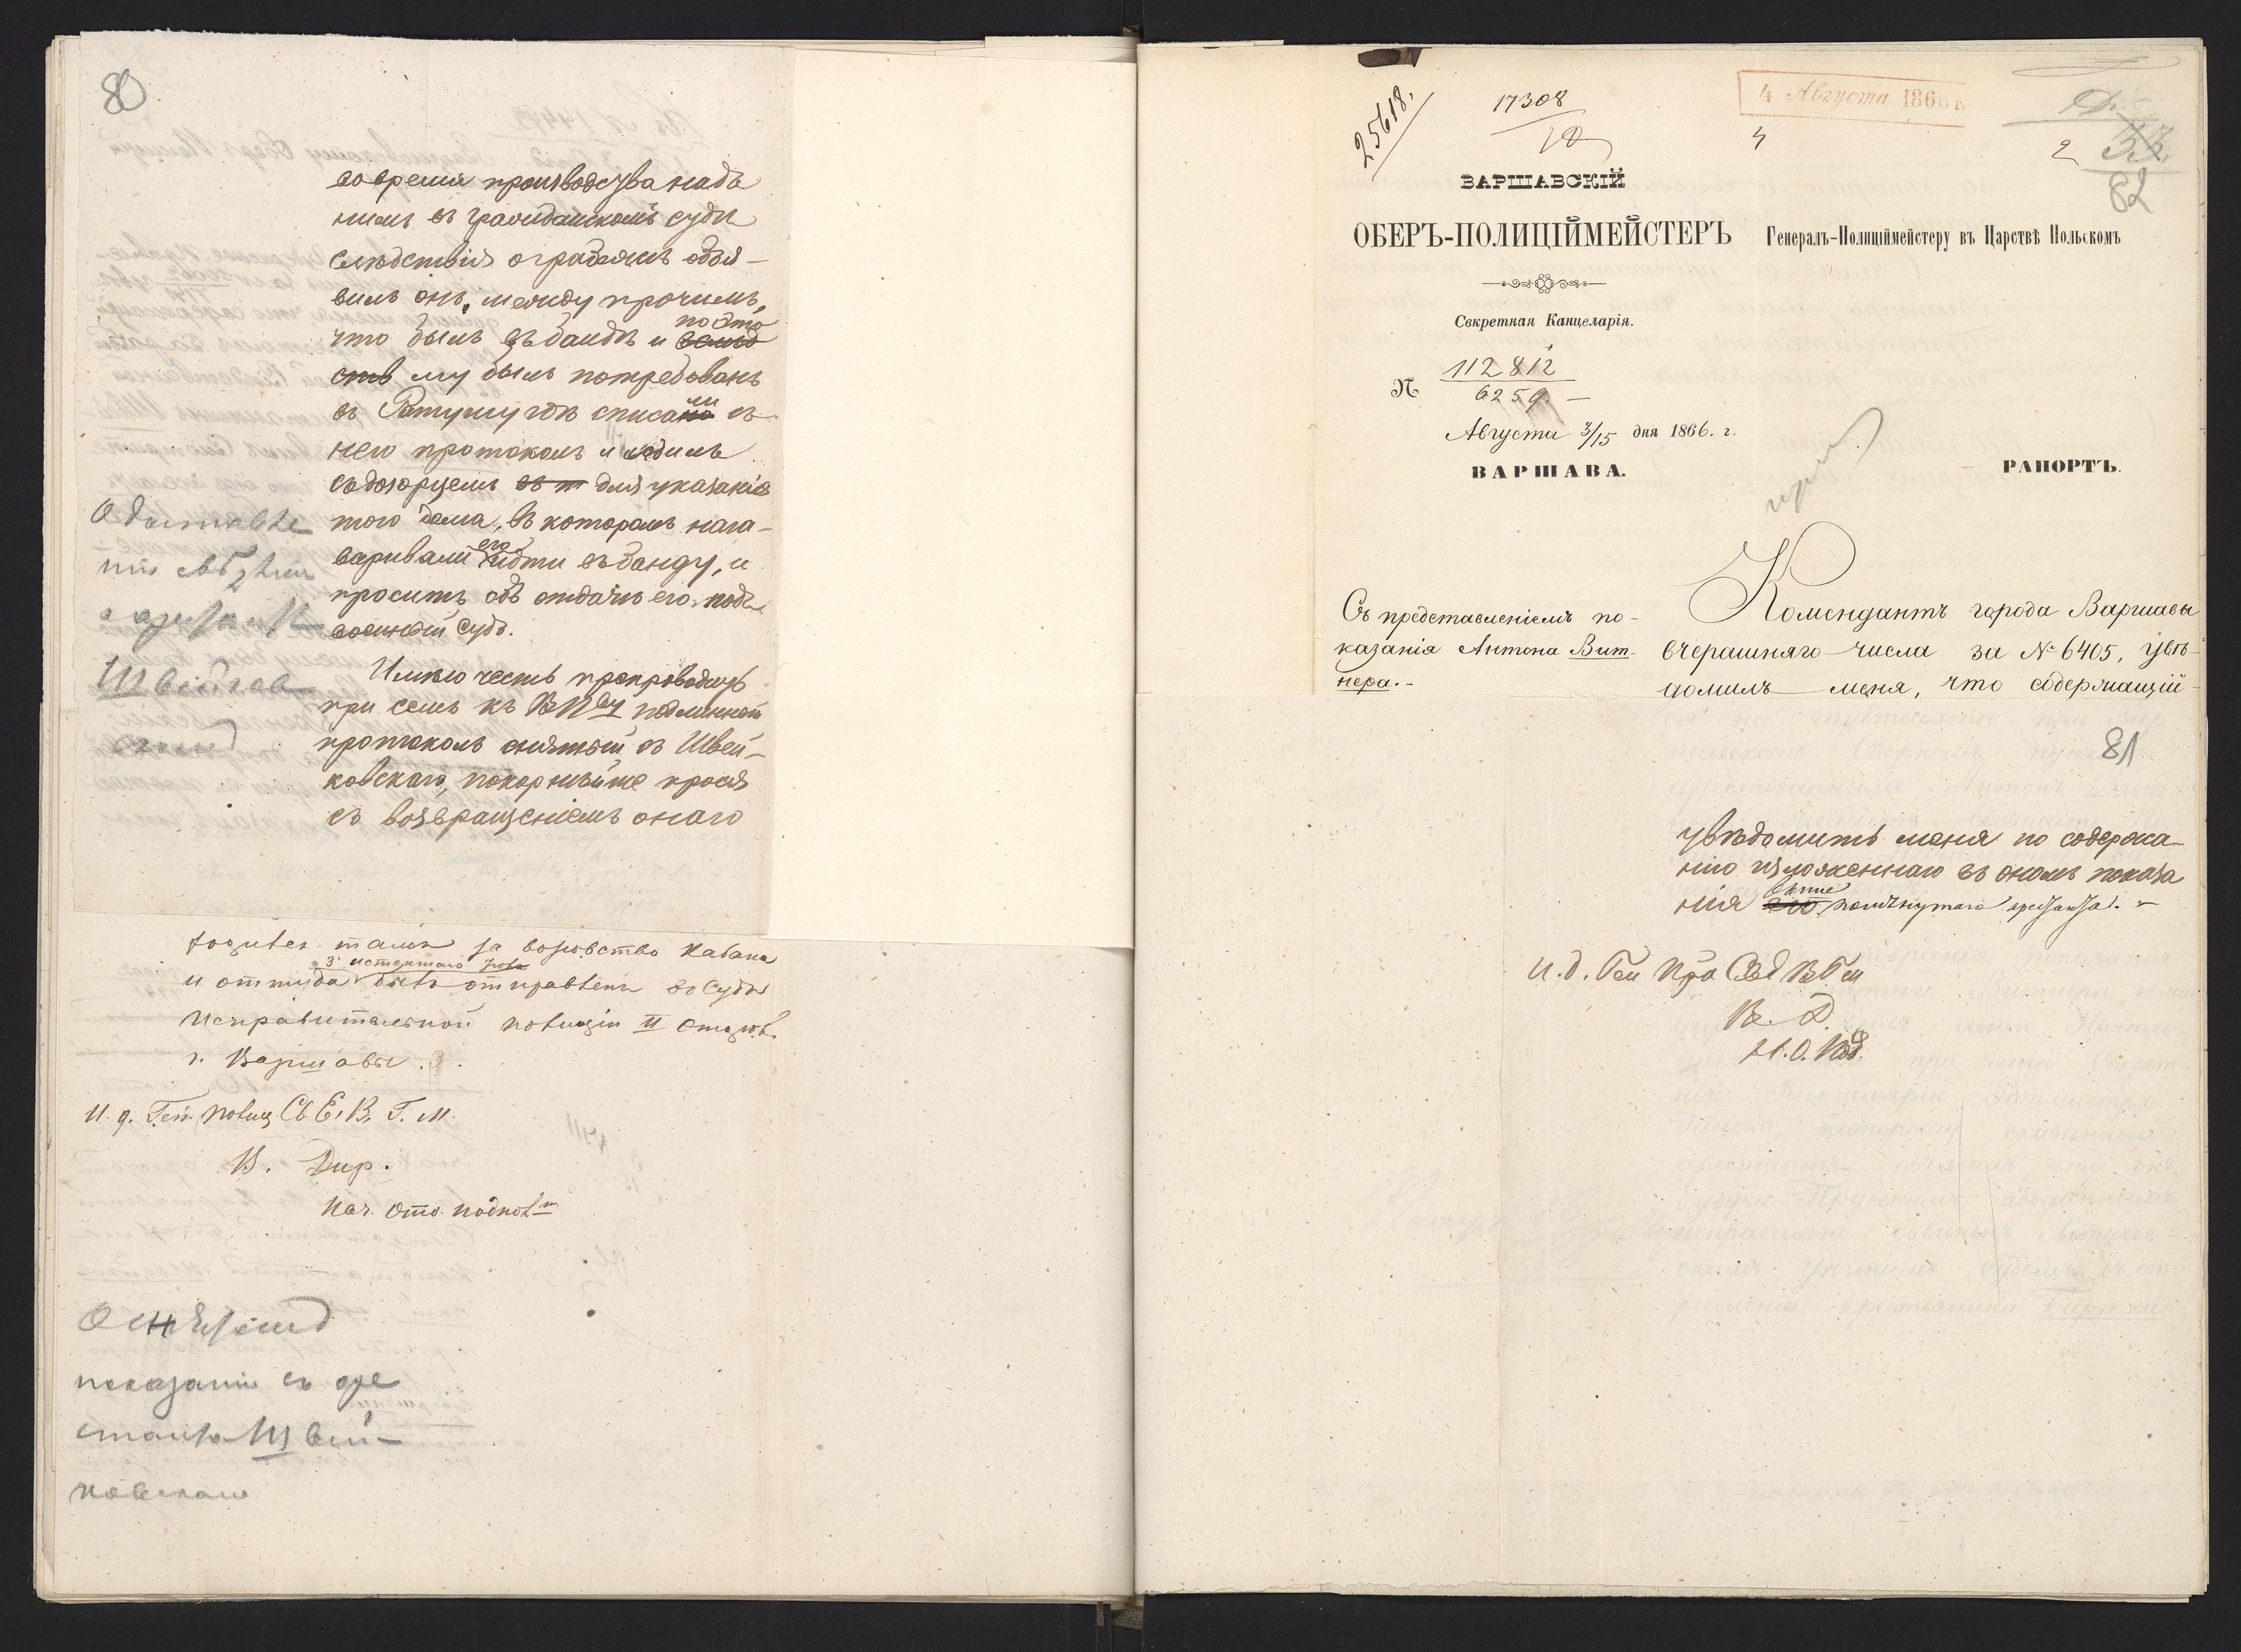 80
во время производства надъ
нимъ въ гражданскомъ судѣ
слѣдствія о грабежѣ объя-
вилъ онъ, между прочимъ,
что былъ въ бандѣ и поэто
му былъ потребованъ
въ Ратушу гдѣ списали съ
него протоколъ и водили
съ дозорцемъ для указанія
того дома, въ которомъ нага-
варивали его идти въ банду, и
проситъ объ отдачѣ его подъ
военный судъ.
Имѣю честь препроводить
при семъ къ подлинный
протоколъ снятый съ Швей-
ковскаго, покорнѣйше прося
съ возвращеніемъ онаго
О доставле
ніи свѣдѣнія
о арестантѣ
Швейков
скомъ
за воровство кабана
3. истекшаго
и оттуда былъ отправленъ въ Судъ
Исправительной Полиціи II Отдѣл.
г. Варшавы.
И. д. Ген. Полиц. Св. Е. В. Г. М.
В. Дир.
Нач. Отд. Подпол.
О снятіи
показанія съ аре
станта Швей-
ковскаго
25618.
17308
4 Августа 1866
4
2
33
82
ВАРШАВСКІЙ
ОБЕРЪ-ПОЛИЦІЙМЕЙСТЕРЪ
Генералъ-Полиціймейстеру въ Царствѣ Польскомъ
Секретная Канцелярія.
№ 112812
6259.
Августа 3/15 дня 1866. г.
ВАРШАВА.
РАПОРТЪ.
Съ представленіемъ по-
казанія Антона Вит-
нера.-
Комендантъ города Варшавы
вчерашняго числа за № 6405, увѣ-
домилъ меня, что содержащій-
81
увѣдомить меня по содержа-
нію изложеннаго въ ономъ показа
нія помянутаго арестанта.
И. д. Ген
В. Д.
Н. О. Под.